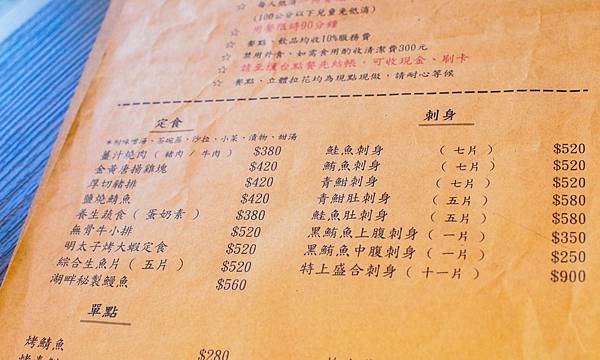 ☆ 每人低消
(100公分以下兒童免低消)
☆ 用餐限時90分鐘
☆ 餐點、飲品均收10%服務費
☆ 禁用外食,如需食用酌收清潔費300元
☆ 請至櫃台點餐先結帳,可收現金、刷卡
☆ 餐點、立體拉花均為現點現做,請耐心等候
定食
*附味噌湯、茶碗蒸、沙拉、小菜、漬物、甜湯
薑汁燒肉(豬肉/牛肉) $380
金黃唐揚雞塊 $420
厚切豬排 $420
鹽燒鯖魚 $420
養生蔬食(蛋奶素) $380
無骨牛小排 $520
明太子烤大蝦定食 $520
綜合生魚片(五片) $520
湖畔秘製鰻魚 $560
單點
烤鯖魚
$280
刺身
鮭魚刺身 (七片) $520
鮪魚刺身 (七片) $520
青魽刺身 (七片) $520
青魽肚刺身 (五片) $580
鮭魚肚刺身 (五片) $580
黑鮪魚上腹刺身 (一片) $350
黑鮪魚中腹刺身 (一片) $250
特上盛合刺身 (十一片) $900